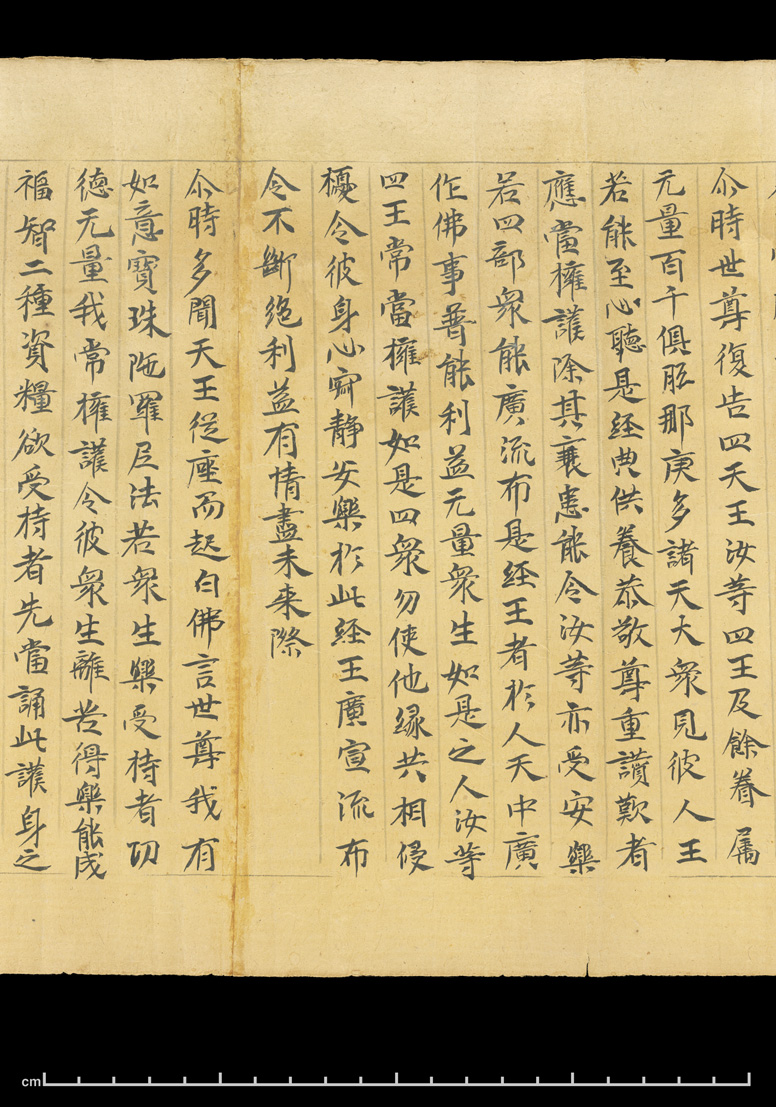 尒時世尊復告四天王汝等四王及餘眷屬
无量百千俱胝那庾多諸天大衆見彼人王
若能至心聽是經典供養恭敬尊重讚歎者
應當擁護除其襄患能令汝等亦受安樂
若四部衆能廣流布是經王者於人天中廣
作佛事普能利益无量衆生如是之人汝等
四王常當擁護如是四衆勿使他緣共相侵
擾令彼身心寂靜安樂於此經王廣宣流布
令不斷絕利益有情盡未来際
尒時多聞天王從座而起白佛言世尊我有
如意寶珠陁羅尼法若衆生樂受持者功
德无量我常擁護令彼衆生離苦得樂能成
福智二種資糧欲受持者先當誦此護身之
cm